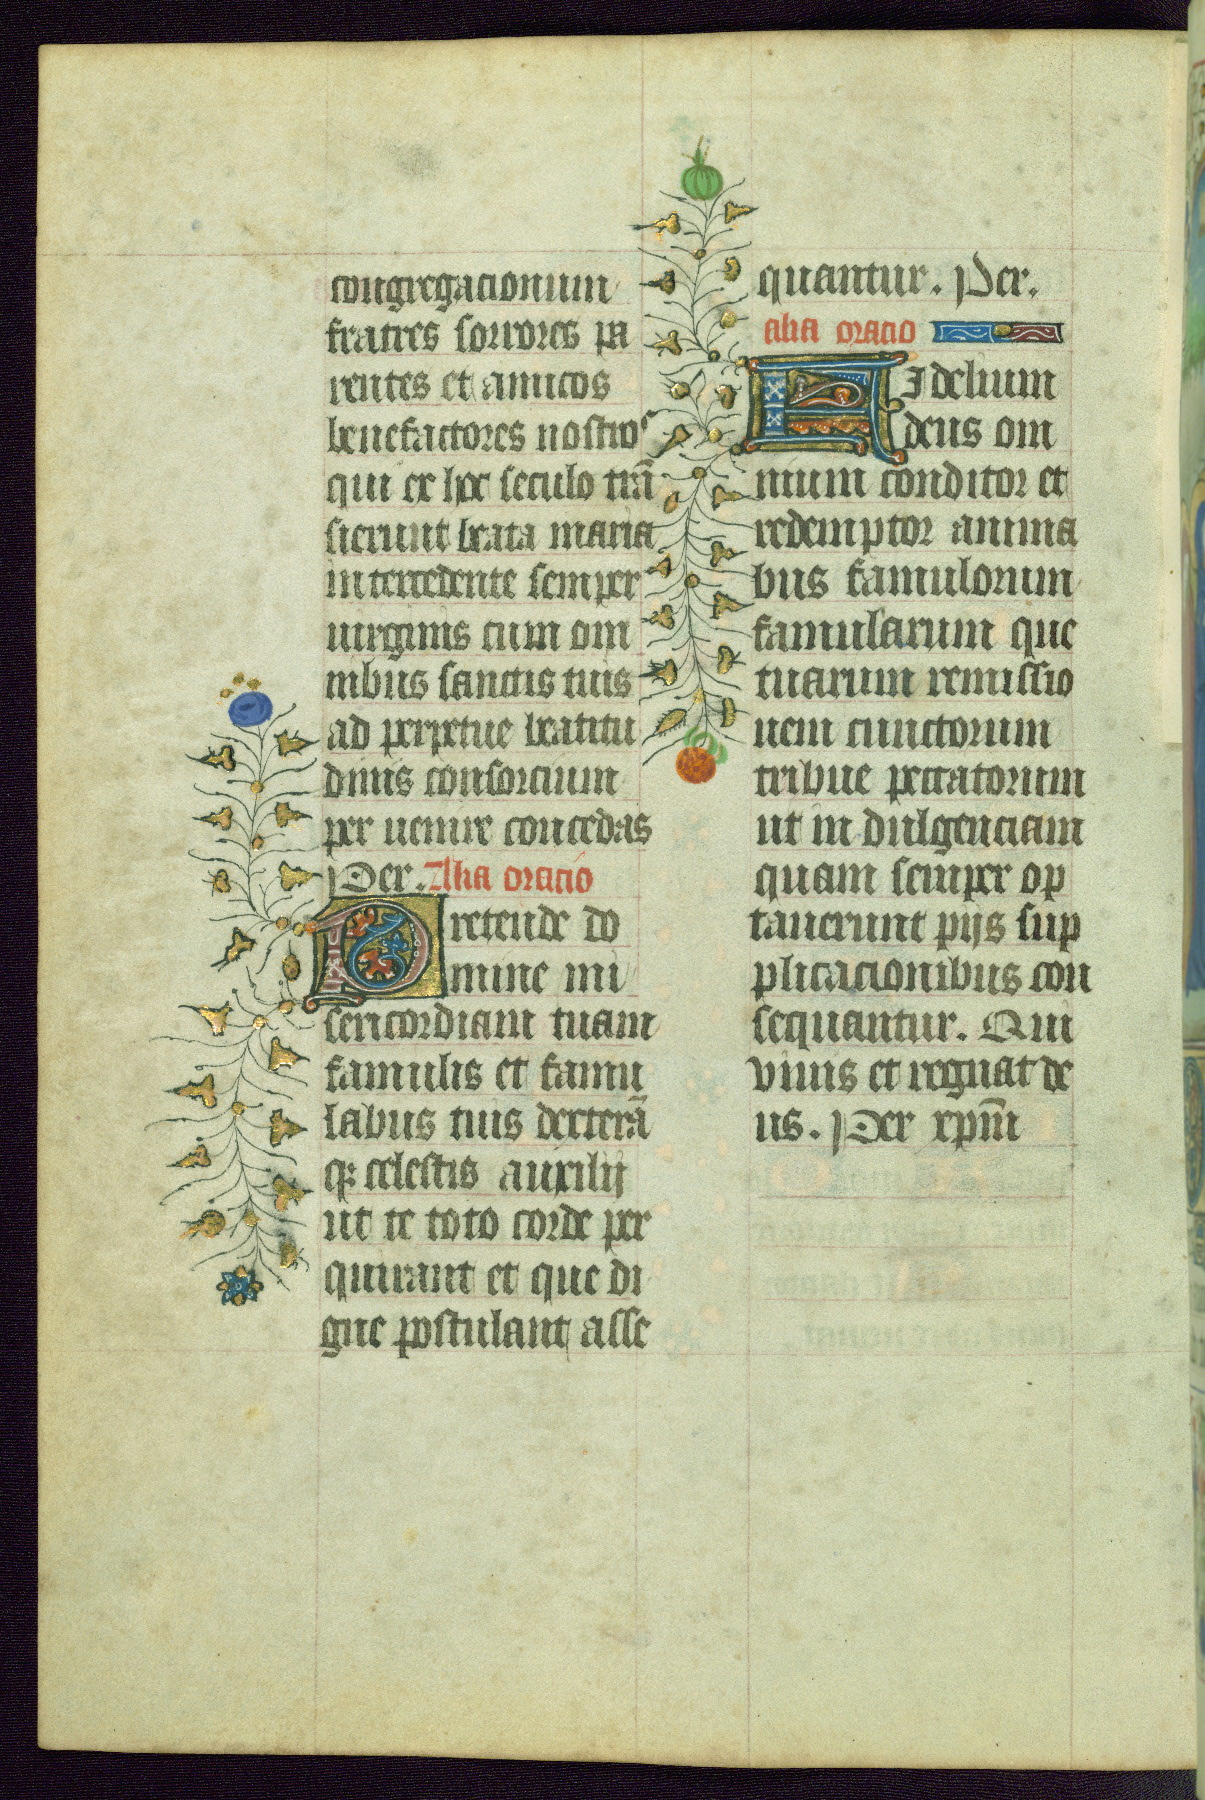 congregacionum
fratres sorrores pa
rentes et amicos
benefactores nostros
qui ex hoc seculo trā
sierunt beata maria
intercedente semper
uirginis cum om
nibus sanctis tuis
ad perpetue beatitu
dinis consorcium
per uenire concedas
Per. Alia oracio
Pretende do
mine mi
sericordiam tuam
famulis et famu
labus tuis dexterā
qꝫ celestis auxilij
ut te toto corde per
quirant et que di
gne postulant asse
quantur. Per.
alia oracio
Fidelium
deus om
nium conditor et
redemptor anima
bus famulorum
famularum que
tuarum remissio
nem cunctorum
tribue peccatorum
ut in dulgenciam
quam semper op
tauerunt pijs sup
plicacionibus con
sequantur. Qui
viuis et regnat de
us. Per xpm̄